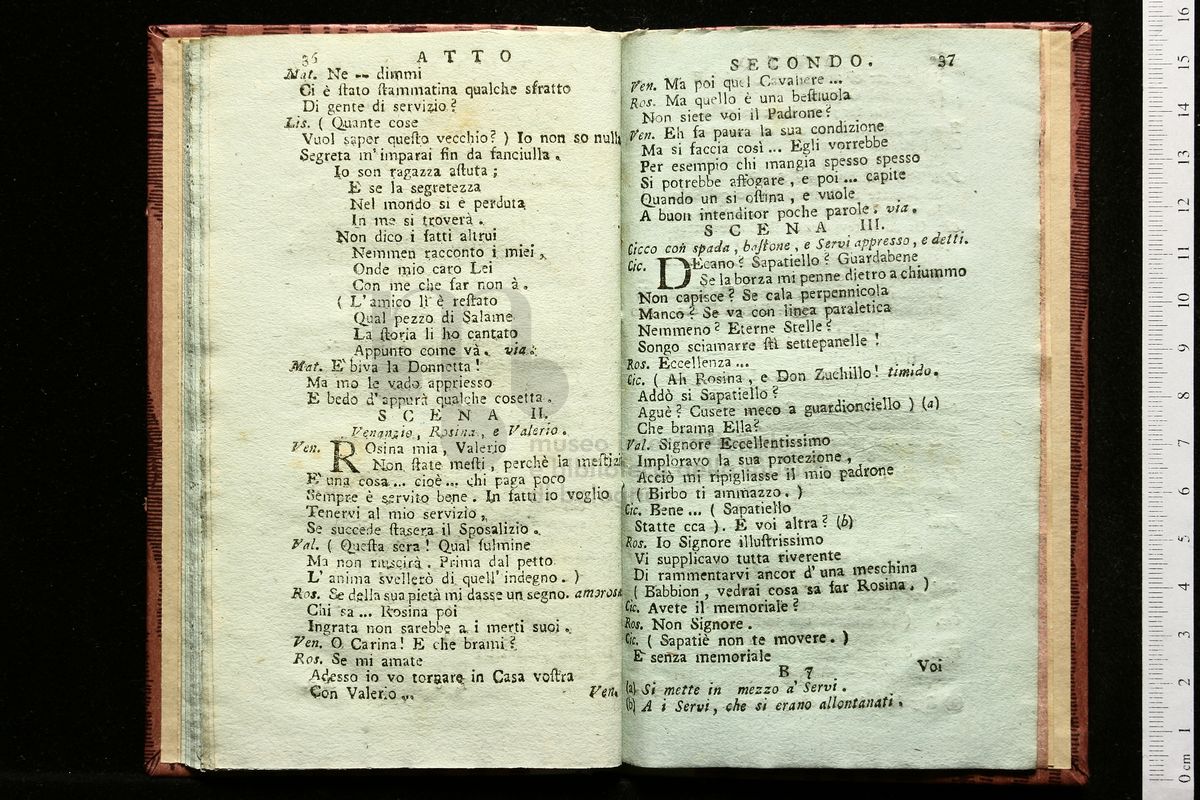 36 ATTO
Mat. Ne -- dimmi
Ci è ſtato ſtammatina qualche sfratto
Di gente di servizio?
Lis. ( Quante cose
Vuol saper queſto vecchio? ) Io non so nulla
Segreta m' imparai fin da fanciulla.
Io son ragazza aſtuta;
E se la segretezza
Nel mondo si è perduta
In me si troverà.
Non dico i fatti altrui
Nemmen racconto i miei,
Onde mio caro Lei
Con me che far non à.
( L'amico lì è reſtato
Qual pezzo di Salame
La ſtoria li ho cantato
Appunto come và. via.
Mat. E' biva la Donnetta!
Ma mo le vado appriesso
E bedo d'appurà qualche cosetta.
SCENA II.
Venanzio, Rosina, e Valerio.
Ven. ROsina mia, Valerio
Non ſtate meſti, perchè la meſtizi
E' una cosa... cioè... chi paga poco
Sempre è servito bene. In fatti io voglio
Tenervi al mio servizio,
Se succede ſtasera il Sposalizio.
Val. ( Queſta sera! Qual fulmine
Ma non riuscirà. Prima dal petto
L'anima svellerò di quell' indegno. )
Ros. Se dalla sua pietà mi dasse un segno. amorosa
Chi sa... Rosina poi
Ingrata non sarebbe a i merti suoi.
Ven. O Carina! E che brami?
Ros. Se mi amate
Adesso io vo tornare in Casa voſtra
Con Valerio...
Ven.
SECONDO. 37
Ven. Ma poi quel Cavaliere...
Ros. Ma quello è una beſtiuola
Non siete voi il Padrone?
Ven. Eh fa paura la sua condizione
Ma si faccia così... Egli vorrebbe
Per esempio chi mangia spesso spesso
Si potrebbe affogare, e poi... capite
Quando un si oſtina, e vuole
A buon intenditor poche parole. via.
SCENA III.
Cicco con spada, baſtone, e Servi appresso, e detti.
Cic. DEcano? Sapatiello? Guardabene
Se la borza mi penne dietro a chiummo
Non capisce? Se cala perpennicola
Manco? Se va con linea paraletica
Nemmeno? Eterne Stelle?
Songo sciamarre ſti settepanelle!
Ros. Eccellenza...
Cic. ( Ah Rosina, e Don Zuchillo! timido.
Addò si Sapatiello?
Aguè? Cusete meco a guardionciello ) (a)
Che brama Ella?
Val. Signore Eccellentissimo
Imploravo la sua protezione,
Acciò mi ripigliasse il mio padrone
( Birbo ti ammazzo. )
Cic. Bene... ( Sapatiello
Statte cca ). E voi altra? (b)
Ros. Io Signore illuſtrissimo
Vi supplicavo tutta riverente
Di rammentarvi ancor d'una meschina
( Babbion, vedrai cosa sa far Rosina. )
Cic. Avete il memoriale?
Ros. Non Signore.
Cic. ( Sapatiè non te movere. )
E senza memoriale
B 7 Voi
(a) Si mette in mezzo a' Servi.
(b) A i Servi, che si erano allontanati.
16
15
14
13
12
11
10
9
8
7
6
5
4
3
2
1
0 cm